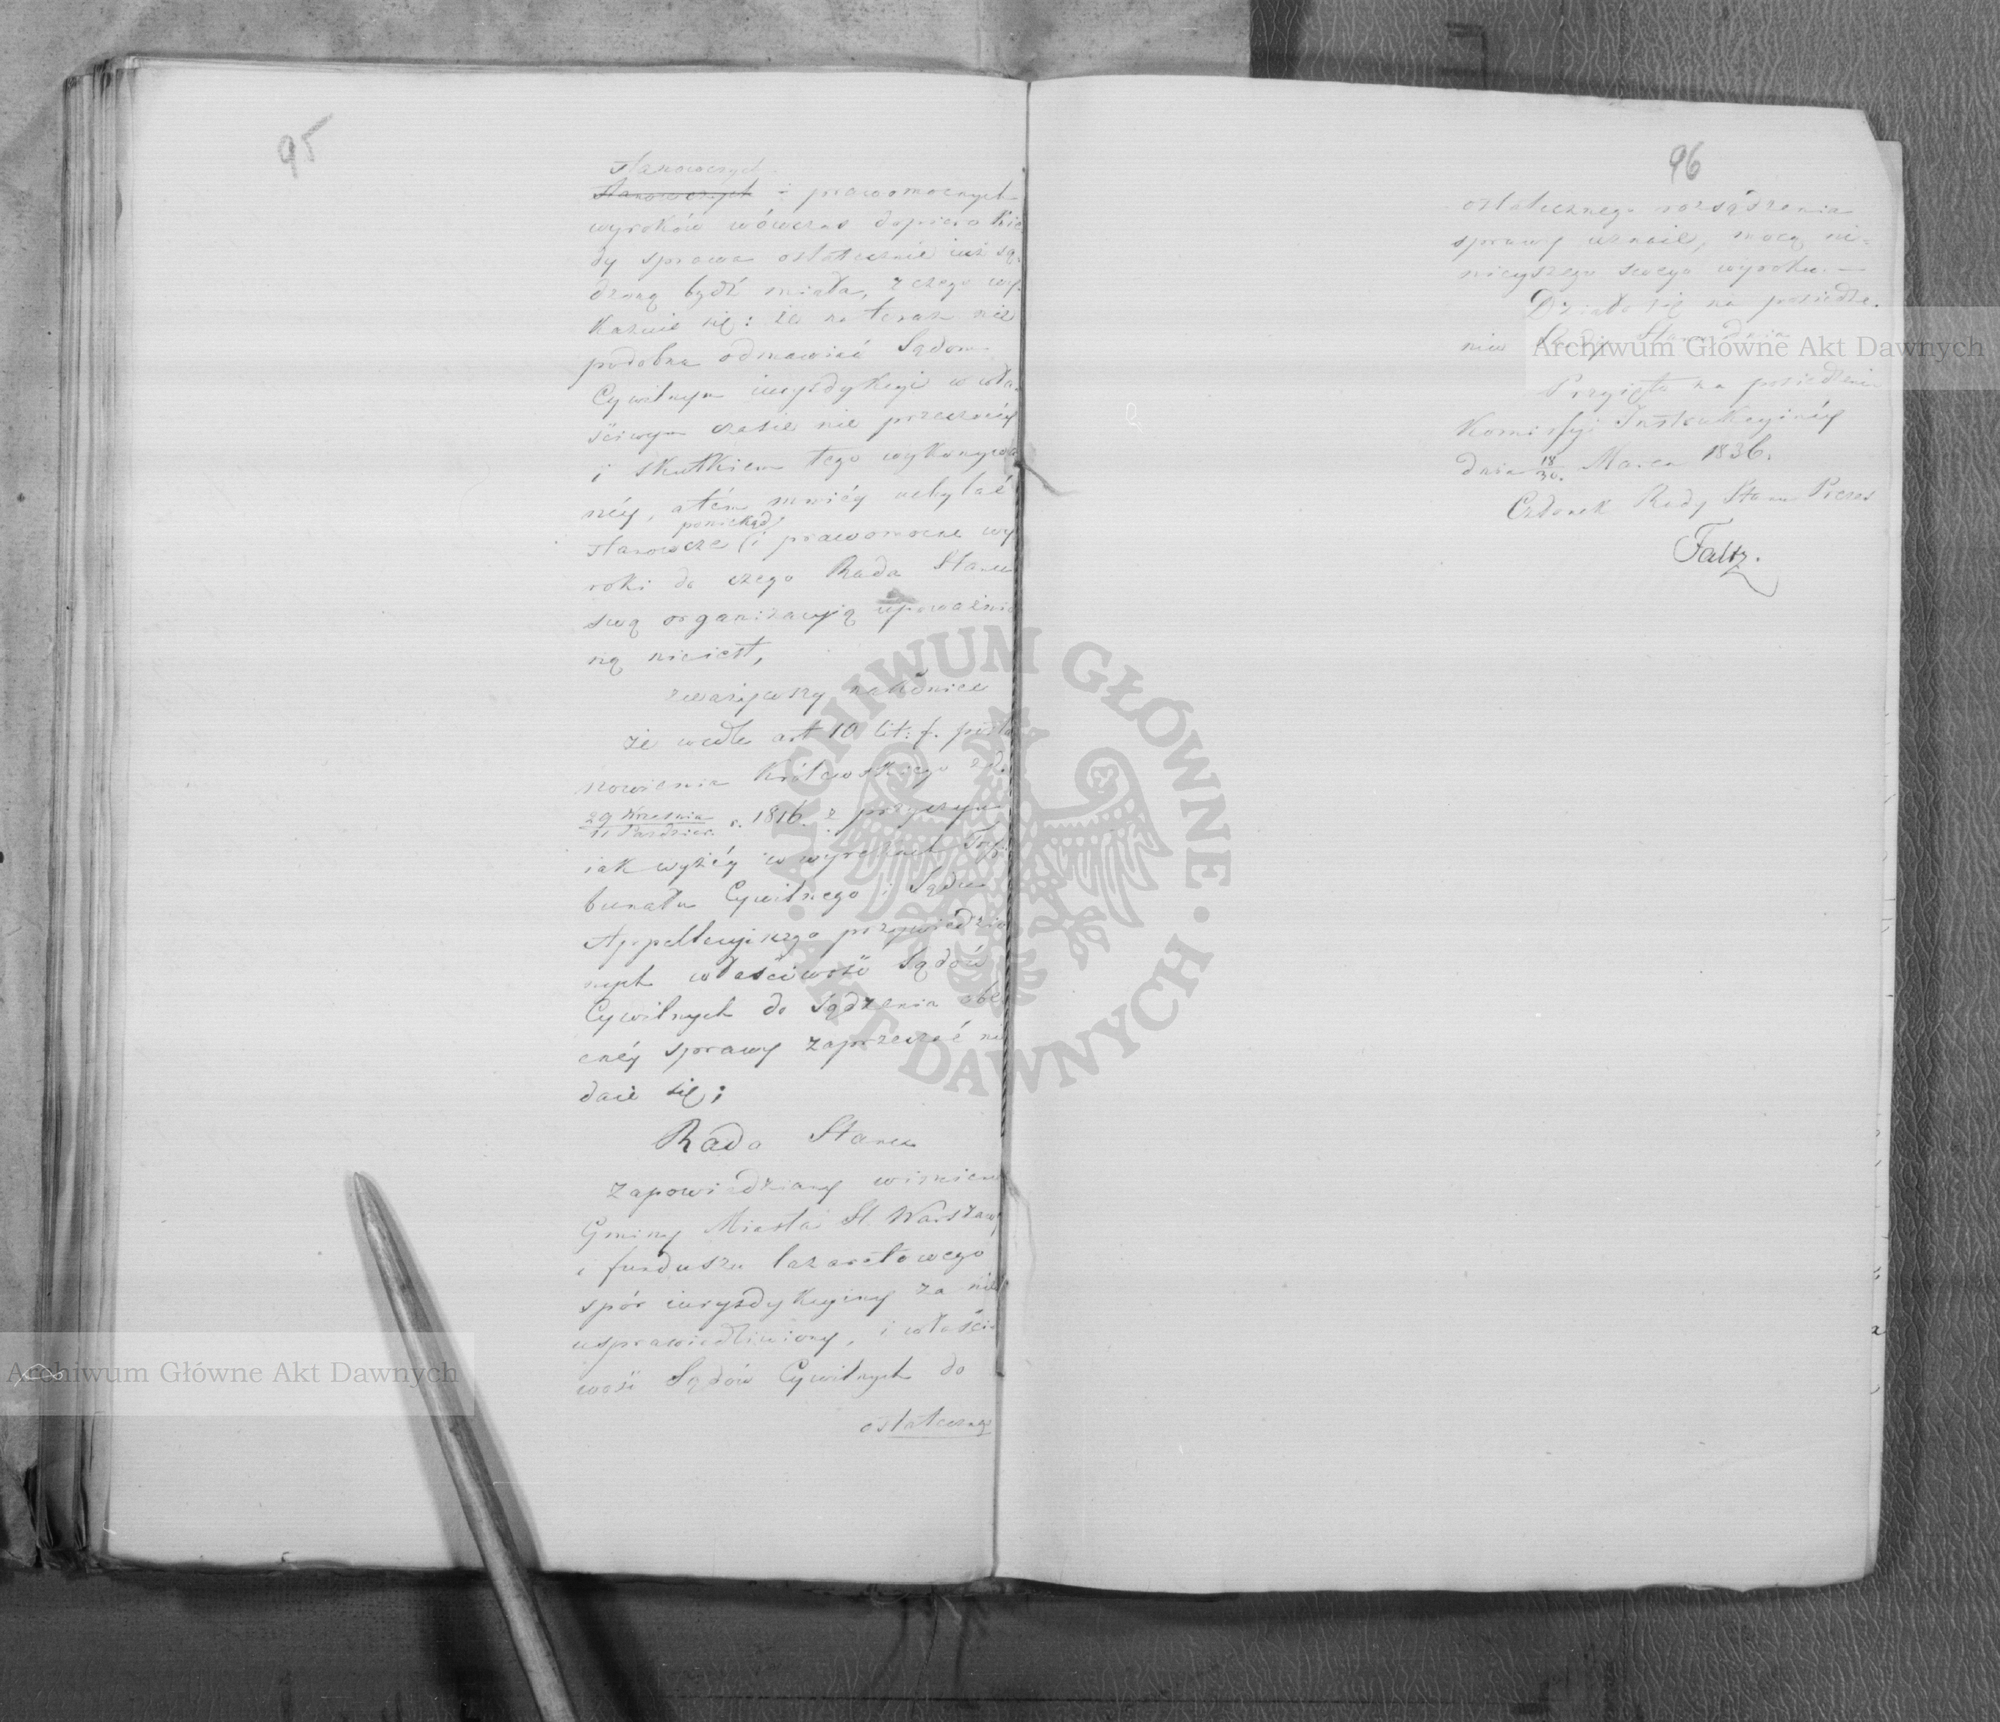 95
stanowczych
stanowczych i prawomocnych
wyroków wówczas dopiero kie
dy sprawa ostatecznie iuż są-
dzoną bydź miała, z czego wy-
kazuie się: że na teraz nie
podobna odmawiać Sądom
Cywilnym iurysdykcyi w wła-
ściwym czasie nie przeczonéy
i skutkiem tego wykonywa
néy, a tém mniéy uchylać
poniekąd
stanowcze (i prawomocne wy
roki do czego Rada Stanu
swą organizacyją upoważnio
ną nieiest,
zważywszy nakoniec
że wedle art 10 lit: f. posta
nowienia Królewskiego z d.
29 Września
11 Paździer. r. 1816. z przyczyn
iak wyżéy w wyrokach Try
bunału Cywilnego i Sądu
Appellacyinego przywiedzio
nych właściwość Sądów
Cywilnych do sądzenia obe
cnéy sprawy zaprzeczać nie
daie się;
Rada Stanu
zapowiedziany imieniem
Gminy Miasta St. Warszawy
i funduszu lazaretowego
spór iurysdykcyiny za nie
usprawiedliwiony, i właści
wość Sądów Cywilnych do
ostatecznego
96
ostatecznego rozsądzenia
sprawy uznaie, mocą ni-
nieyszego swego wyroku. —
Działo się na posiedze-
niu Rady Stanu dnia
Przyięto na posiedzeniu
Komissyi Instrukcyinéy
dnia 18/30. Marca 1836.
Członek Rady Stanu Prezes
Faltz.
Archiwum Główne Akt Dawnych
Archiwum Główne Akt Dawnych
ARCHIWUM GŁÓWNE · AKT DAWNYCH ·